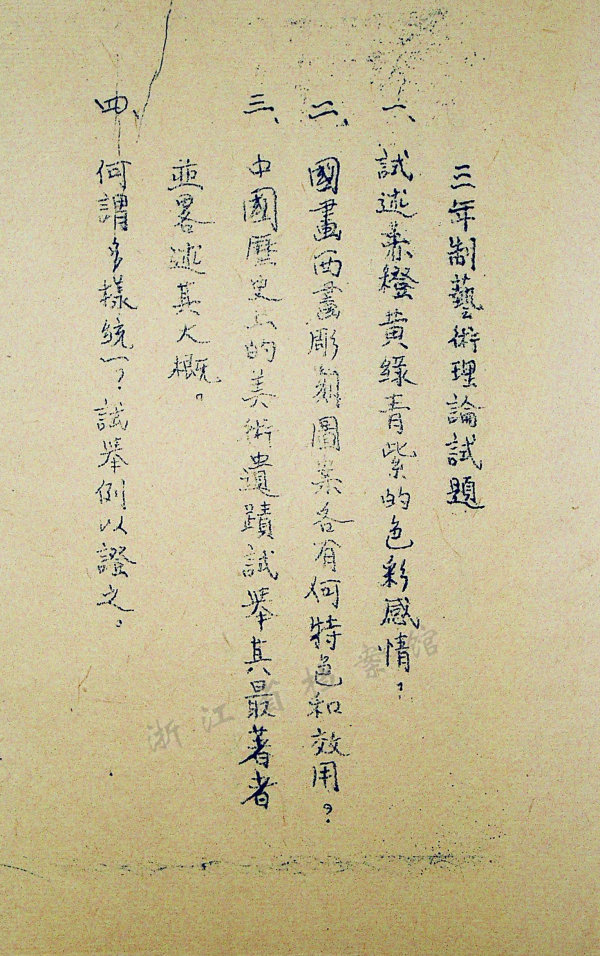 三年制藝術理論試題
一、試述赤橙黃綠青紫的色彩感情？
二、國畫西畫彫刻圖案各有何特色和效用？
三、中國歷史上的美術遺蹟試舉其最著者
並畧述其大概。
四、何謂多樣統一？試舉例以證之。
浙江省档案馆